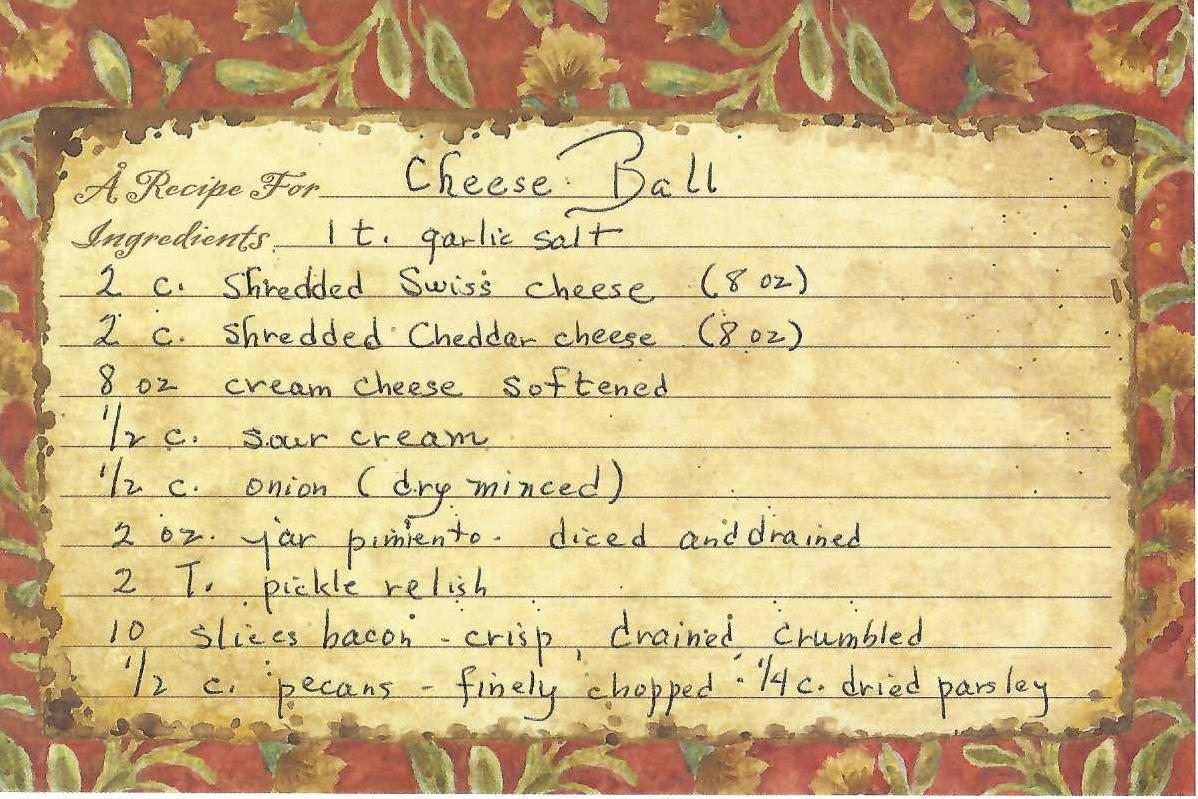 A Recipe For Cheese Ball
Ingredients 1 t. garlic salt
2 c. shredded Swiss cheese (8 oz)
2 c. shredded Cheddar cheese (8 oz)
8 oz cream cheese softened
1/2 c. sour cream
1/2 c. onion (dry minced)
2 oz. jar pimiento - diced and drained
2 T. pickle relish
10 slices bacon - crisp, drained, crumbled
1/2 c. pecans - finely chopped · 1/4 c. dried parsley